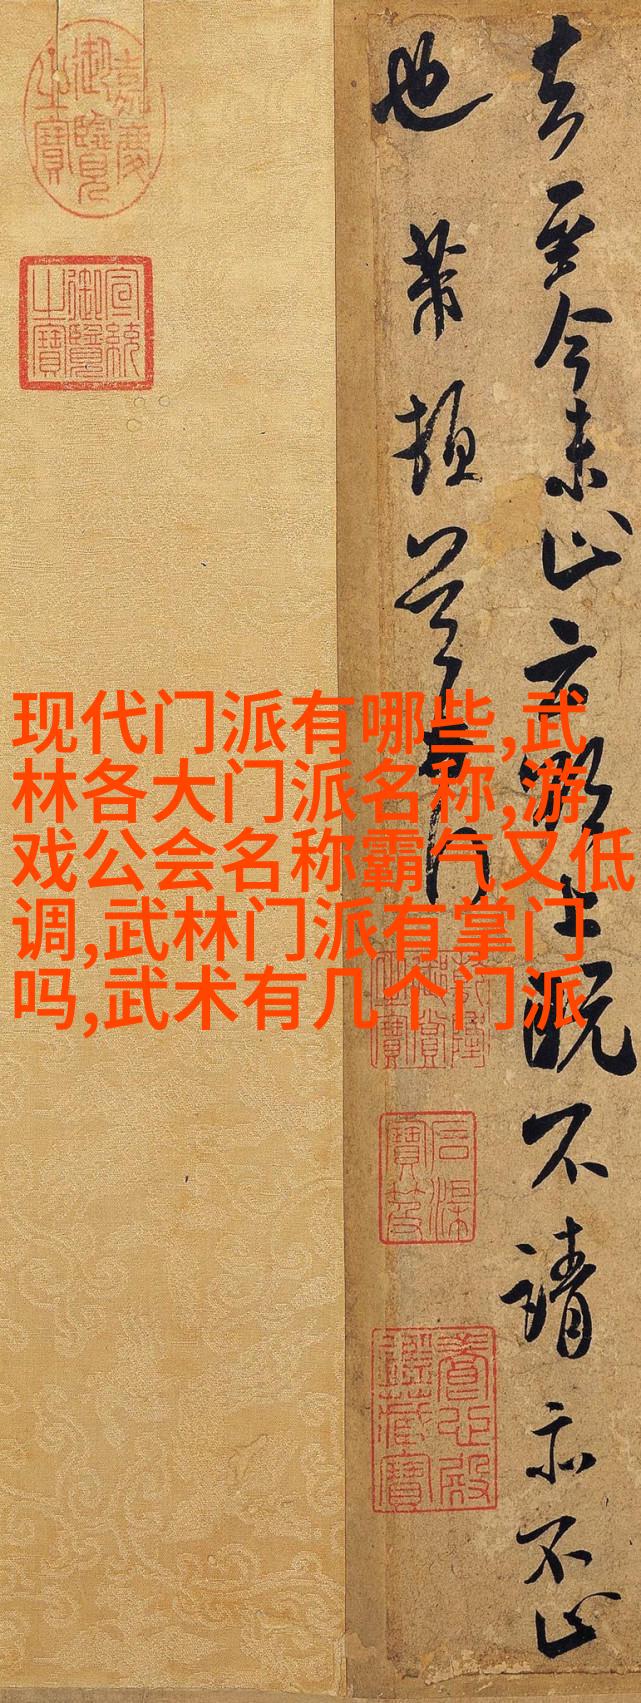 去至今未止亦上既不請亦不止
也芾頓首
嘉慶御覽之寶
宣統御覽之寶
现代门派有哪些,武
林各大门派名称,游
戏公会名称霸气又低
调,武林门派有掌门
吗,武术有几个门派
石渠寶笈
養心殿鑑藏寶